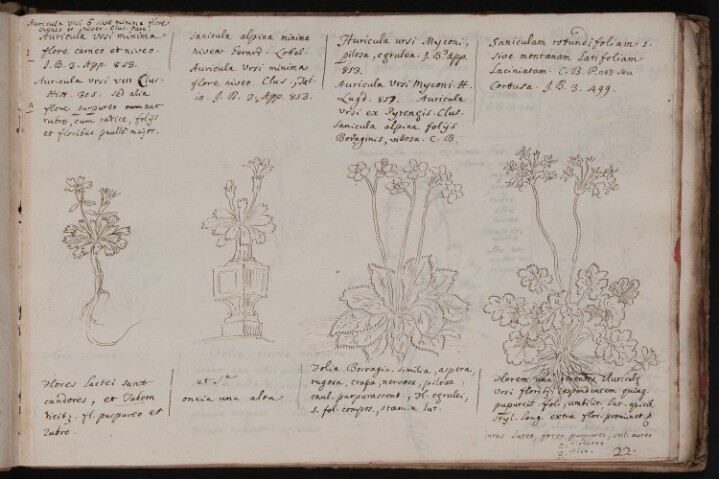 Auricula Vrsi 6. sive minima flore
carneo et niveo. Clus. Pan.
Auricula Vrsi minima
flore carneo et niveo.
J. B. 3. App. 853.
Auricula Vrsi VIII Clus.
Hist. 305. sed alia
flore purpureo
rubro, cum radice, folijs
et floribus paullo major.
Sanicula alpina minima
nivea Gerard. Lobel.
Auricula Vrsi minima
flore niveo Clus.,
in J. B. 3, App. 853.
Auricula Ursi Myconi,
pilosa, cærulea. J. B. 3 app.
853.
Auricula Vrsi Myconi H.
Lugd. 857. Auricula
Vrsi ex Pyrenæis. Clus.
Sanicula alpina folijs
Boraginis, villosa. C. B.
Saniculam rotundifoliam
sive montanam latifoliam
Laciniatam. C. B. P. seu
Cortusa. J. B. 3. 499.
Flores lactei sunt
candores, et Tubom
fl. purpureo et
rubro.
et
una aloa
Folia Borragin. similia, aspera,
rugosa, crapa, nervosa, pilosa;
caul. purpurascent., Fl. cærulei,
5. fol. compos, stamin lut.
Florem una
Vrsi floridi respondentem
fol, umbilic. lut.
Styl. long. extra flor. prominet.
intus luteo, purpureo,
22.